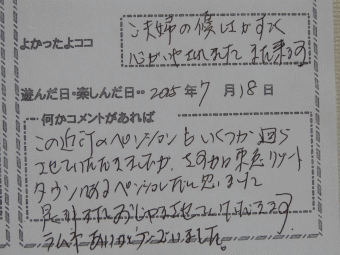 よかったよココ
ご夫婦の優しさがすごく
心がいやされました また来ます
遊んだ日・楽しんだ日・・ 2025年 7月 18日
何かコメントがあれば
この近辺のペンションもいくつか回ら
させていただきましたが、さすがは東急リゾート
タウンにあるペンションだと思いました
是非またおじゃまさせていただきます
ありがとうございました。